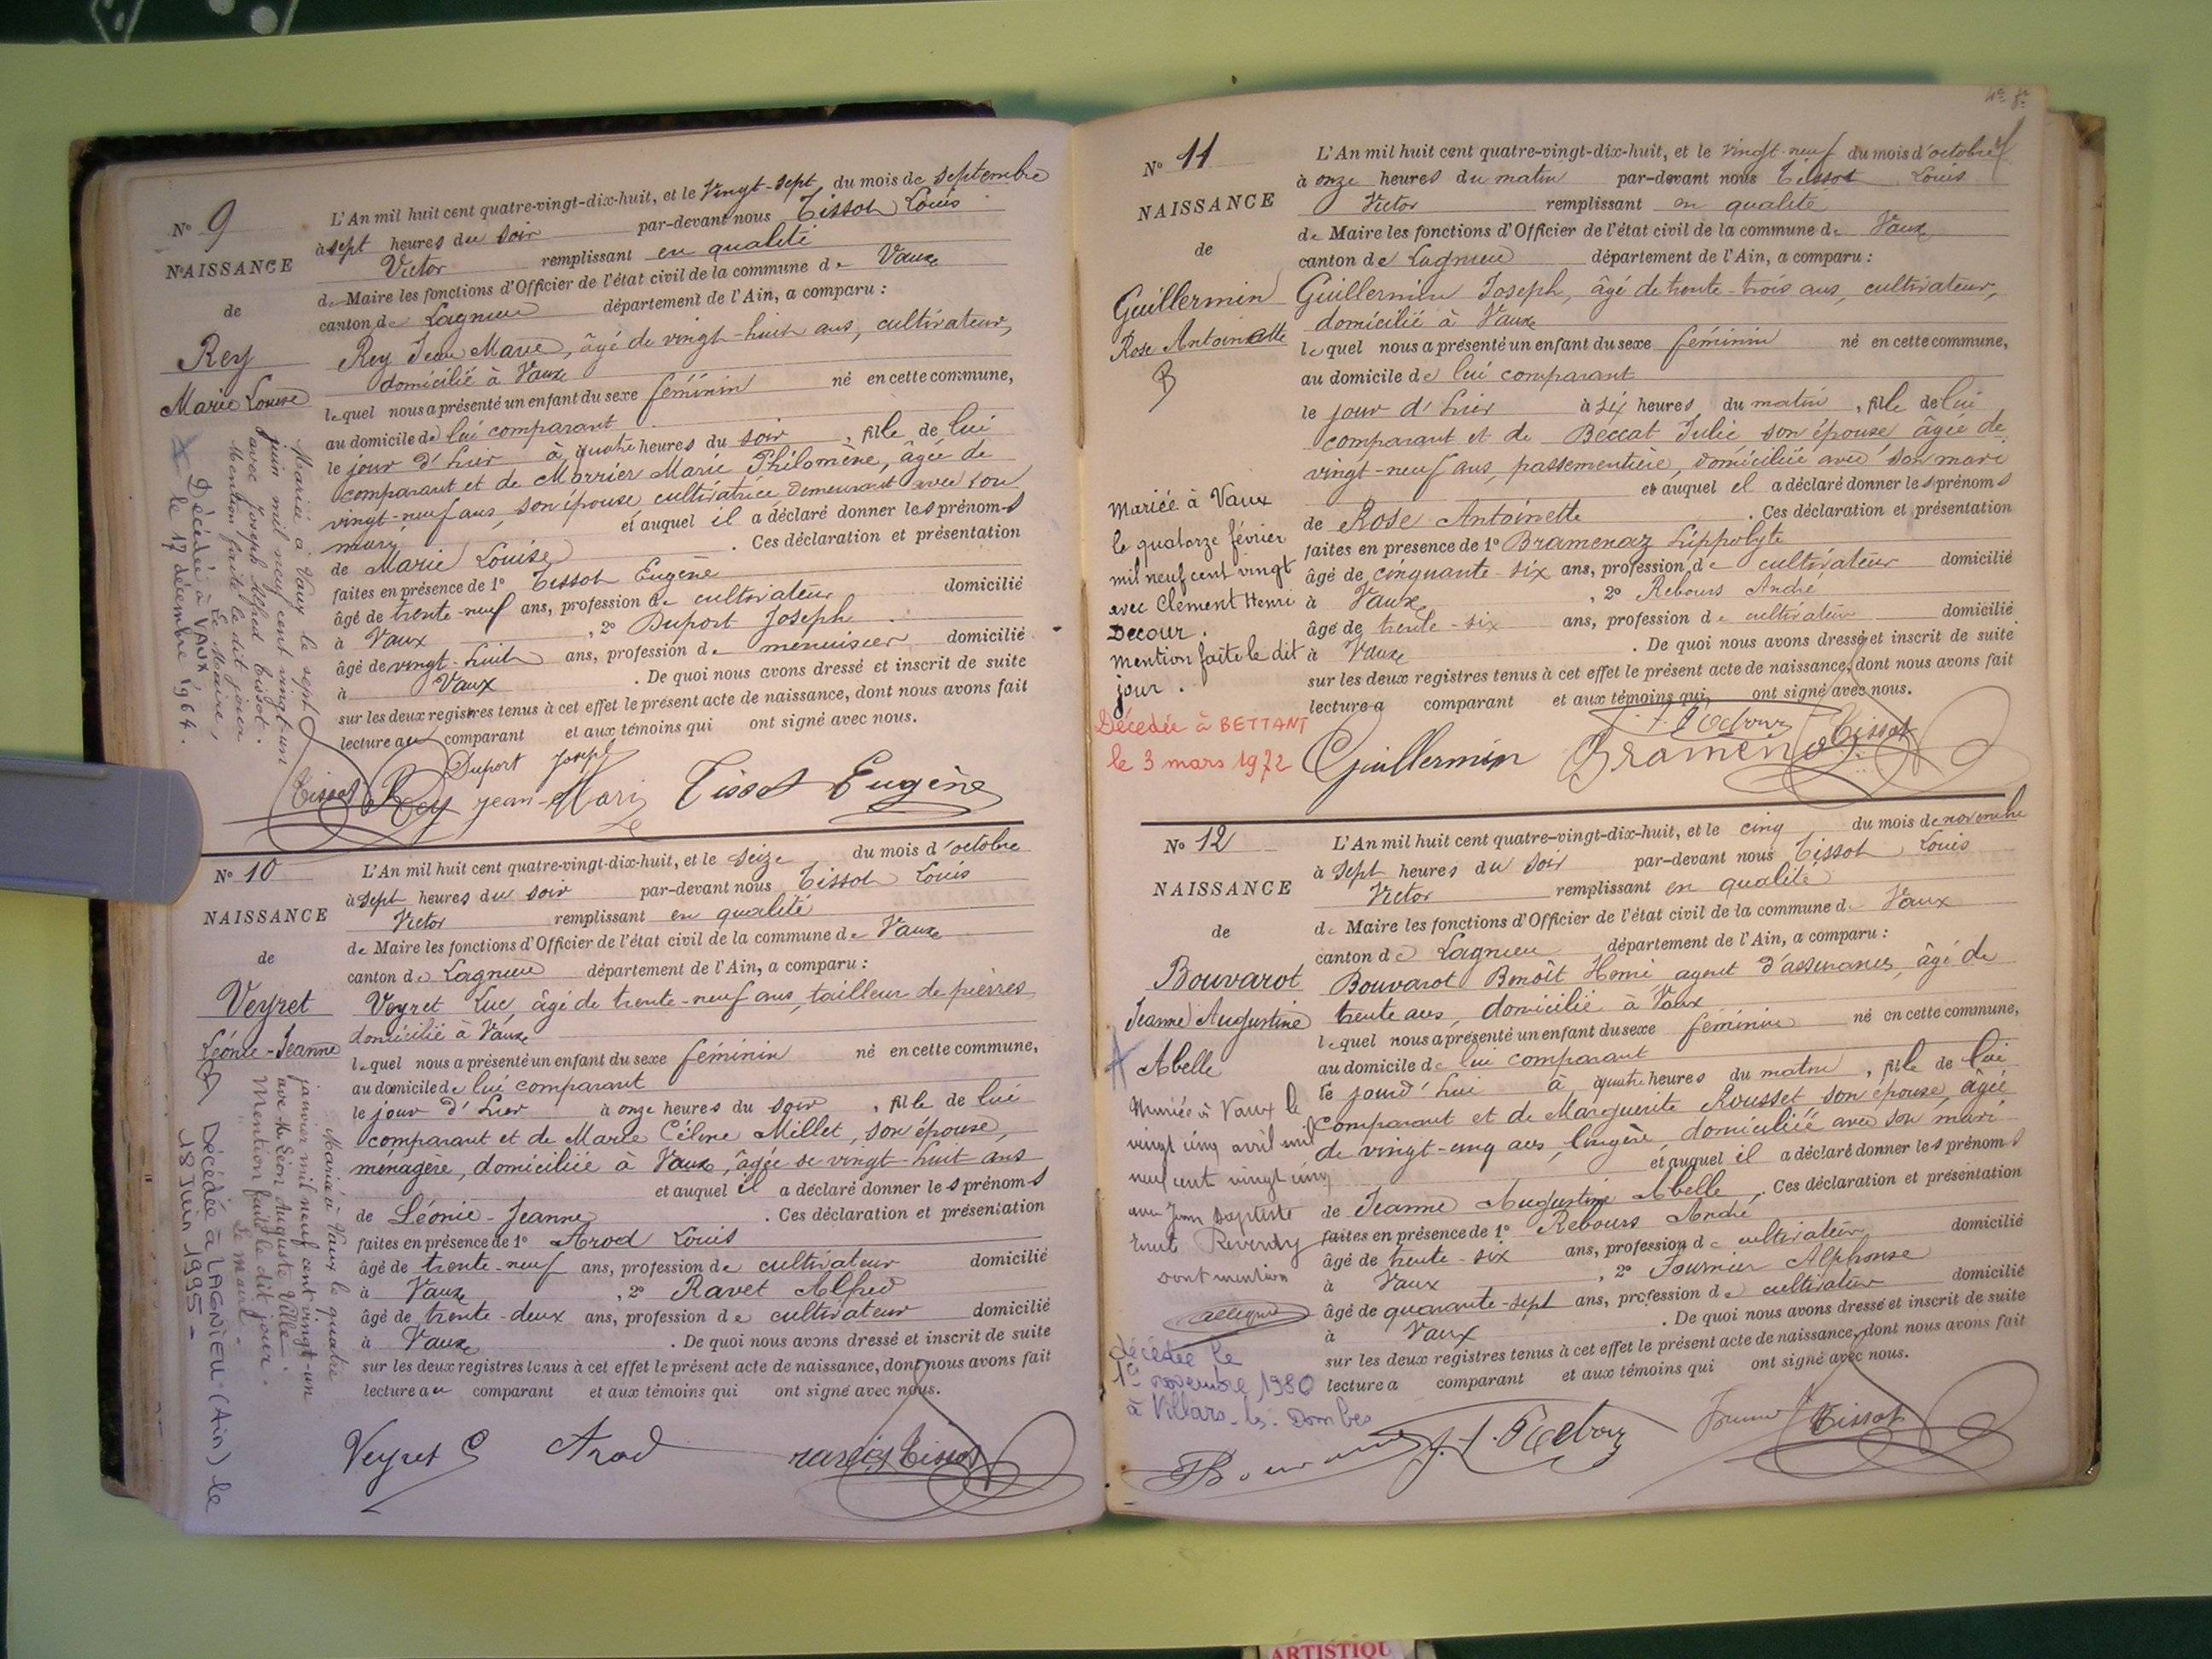 N° 9
NAISSANCE
de
Rey
Marie Louise
Mariée à Vaux le sept
juin mil neuf cent vingt-un
avec Joseph Alfred Tissot.
Mention faite le dit jour
Le Maire,
Décédée à VAUX
le 17 décembre 1964.
L'An mil huit cent quatre-vingt-dix-huit, et le Vingt-sept du mois de septembre
à sept heures du soir par-devant nous Tissot Louis
Victor remplissant en qualité
de Maire les fonctions d'Officier de l'état civil de la commune de Vaux
canton de Lagnieu département de l'Ain, a comparu :
Rey Jean Marie, âgé de vingt-huit ans, cultivateur,
domicilié à Vaux
lequel nous a présenté un enfant du sexe féminin né en cette commune,
au domicile de lui comparant
le jour d'hier à quatre heures du soir, fille de lui
comparant et de Marrier Marie Philomène, âgée de
vingt-neuf ans, son épouse, cultivatrice demeurant avec son
mari et auquel il a déclaré donner les prénoms
de Marie Louise. Ces déclaration et présentation
faites en présence de 1° Tissot Eugène
âgé de trente-neuf ans, profession de cultivateur domicilié
à Vaux, 2° Duport Joseph
âgé de vingt-huit ans, profession de menuisier domicilié
à Vaux. De quoi nous avons dressé et inscrit de suite
sur les deux registres tenus à cet effet le présent acte de naissance, dont nous avons fait
lecture au comparant et aux témoins qui ont signé avec nous.
Duport Joseph
Tissot Rey jean-Mari Tissot Eugène
N° 10
NAISSANCE
de
Veyret
Léonie-Jeanne
Mariée à Vaux le quatre
janvier mil neuf cent vingt-un
avec M. Léon Auguste Ville.
Mention faite le dit jour.
Le Maire
Décédée à LAGNIEU (Ain) le
18 Juin 1995-
L'An mil huit cent quatre-vingt-dix-huit, et le seize du mois d'octobre
à sept heures du soir par-devant nous Tissot Louis
Victor remplissant en qualité
de Maire les fonctions d'Officier de l'état civil de la commune de Vaux
canton de Lagnieu département de l'Ain, a comparu :
Veyret Luc, âgé de trente-neuf ans, tailleur de pierres
domicilié à Vaux
lequel nous a présenté un enfant du sexe féminin né en cette commune,
au domicile de lui comparant
le jour d'hier à onze heures du soir, fille de lui
comparant et de Marie Céline Millet, son épouse,
ménagère, domiciliée à Vaux, âgée de vingt-huit ans
et auquel il a déclaré donner les prénoms
de Léonie-Jeanne. Ces déclaration et présentation
faites en présence de 1° Arod Louis
âgé de trente-neuf ans, profession de cultivateur domicilié
à Vaux, 2° Ravet Alfred
âgé de trente-deux ans, profession de cultivateur domicilié
à Vaux. De quoi nous avons dressé et inscrit de suite
sur les deux registres tenus à cet effet le présent acte de naissance, dont nous avons fait
lecture au comparant et aux témoins qui ont signé avec nous.
Veyret Arod Tissot
N° 11
NAISSANCE
de
Guillermin
Rose Antoinette
Mariée à Vaux
le quatorze février
mil neuf cent vingt
avec Clément Henri
Decour.
Mention faite le dit
jour.
Décédée à BETTANT
le 3 mars 1972
L'An mil huit cent quatre-vingt-dix-huit, et le vingt-neuf du mois d'octobre
à onze heures du matin par-devant nous Tissot Louis
Victor remplissant en qualité
de Maire les fonctions d'Officier de l'état civil de la commune de Vaux
canton de Lagnieu département de l'Ain, a comparu :
Guillermin Joseph, âgé de trente-trois ans, cultivateur,
domicilié à Vaux
lequel nous a présenté un enfant du sexe féminin né en cette commune,
au domicile de lui comparant
le jour d'hier à six heures du matin, fille de lui
comparant et de Beccat Julie son épouse âgée de
vingt-neuf ans, passementière, domiciliée avec son mari
et auquel il a déclaré donner les prénoms
de Rose Antoinette. Ces déclaration et présentation
faites en présence de 1° Bramenaz Hippolyte
âgé de cinquante-six ans, profession de cultivateur domicilié
à Vaux, 2° Rebours André
âgé de trente-six ans, profession de cultivateur domicilié
à Vaux. De quoi nous avons dressé et inscrit de suite
sur les deux registres tenus à cet effet le présent acte de naissance, dont nous avons fait
lecture a comparant et aux témoins qui ont signé avec nous.
Guillermin Tissot
N° 12
NAISSANCE
de
Bouvarot
Jeanne Augustine
Abelle
Mariée à Vaux le
vingt cinq avril mil
neuf cent vingt cinq
avec Jean Baptiste
Reverdy
dont mention
décédée le
1er novembre 1980
à Villars-les-Dombes
L'An mil huit cent quatre-vingt-dix-huit, et le cinq du mois de novembre
à sept heures du soir par-devant nous Tissot Louis
Victor remplissant en qualité
de Maire les fonctions d'Officier de l'état civil de la commune de Vaux
canton de Lagnieu département de l'Ain, a comparu :
Bouvarot Benoît Henri agent d'assurances, âgé de
trente ans, domicilié à Vaux
lequel nous a présenté un enfant du sexe féminin né en cette commune,
au domicile de lui comparant
le jourd'hui à quatre heures du matin, fille de lui
comparant et de Marguerite Rousset son épouse, âgée
de vingt-cinq ans, lingère, domiciliée avec son mari
et auquel il a déclaré donner les prénoms
de Jeanne Augustine Abelle. Ces déclaration et présentation
faites en présence de 1° Rebours André
âgé de trente-six ans, profession de cultivateur domicilié
à Vaux, 2° Fournier Alphonse
âgé de quarante-sept ans, profession de cultivateur domicilié
à Vaux. De quoi nous avons dressé et inscrit de suite
sur les deux registres tenus à cet effet le présent acte de naissance, dont nous avons fait
lecture a comparant et aux témoins qui ont signé avec nous.
Tissot
ARTISTIQU